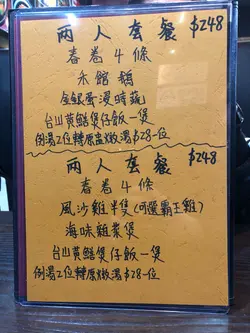 兩人套餐 $248
春卷4條
禾館鵝
金銀蛋浸時蔬
台山黄鱔煲仔飯一煲
例湯2位轉原盅燉湯$28一位
兩人套餐 $248
春卷4條
風沙雞半隻(可選霸王雞)
海味雜菜煲
台山黄鱔煲仔飯一煲
例湯2位轉原盅燉湯$28一位